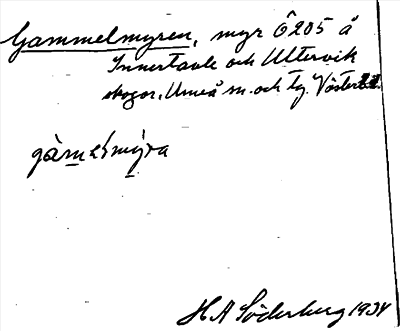 Gammelmyren, myr Ô205 å
Innertavle och Ultervik
skogar, Umeå sn. och tg. Västerb.
H A Söderberg 1934